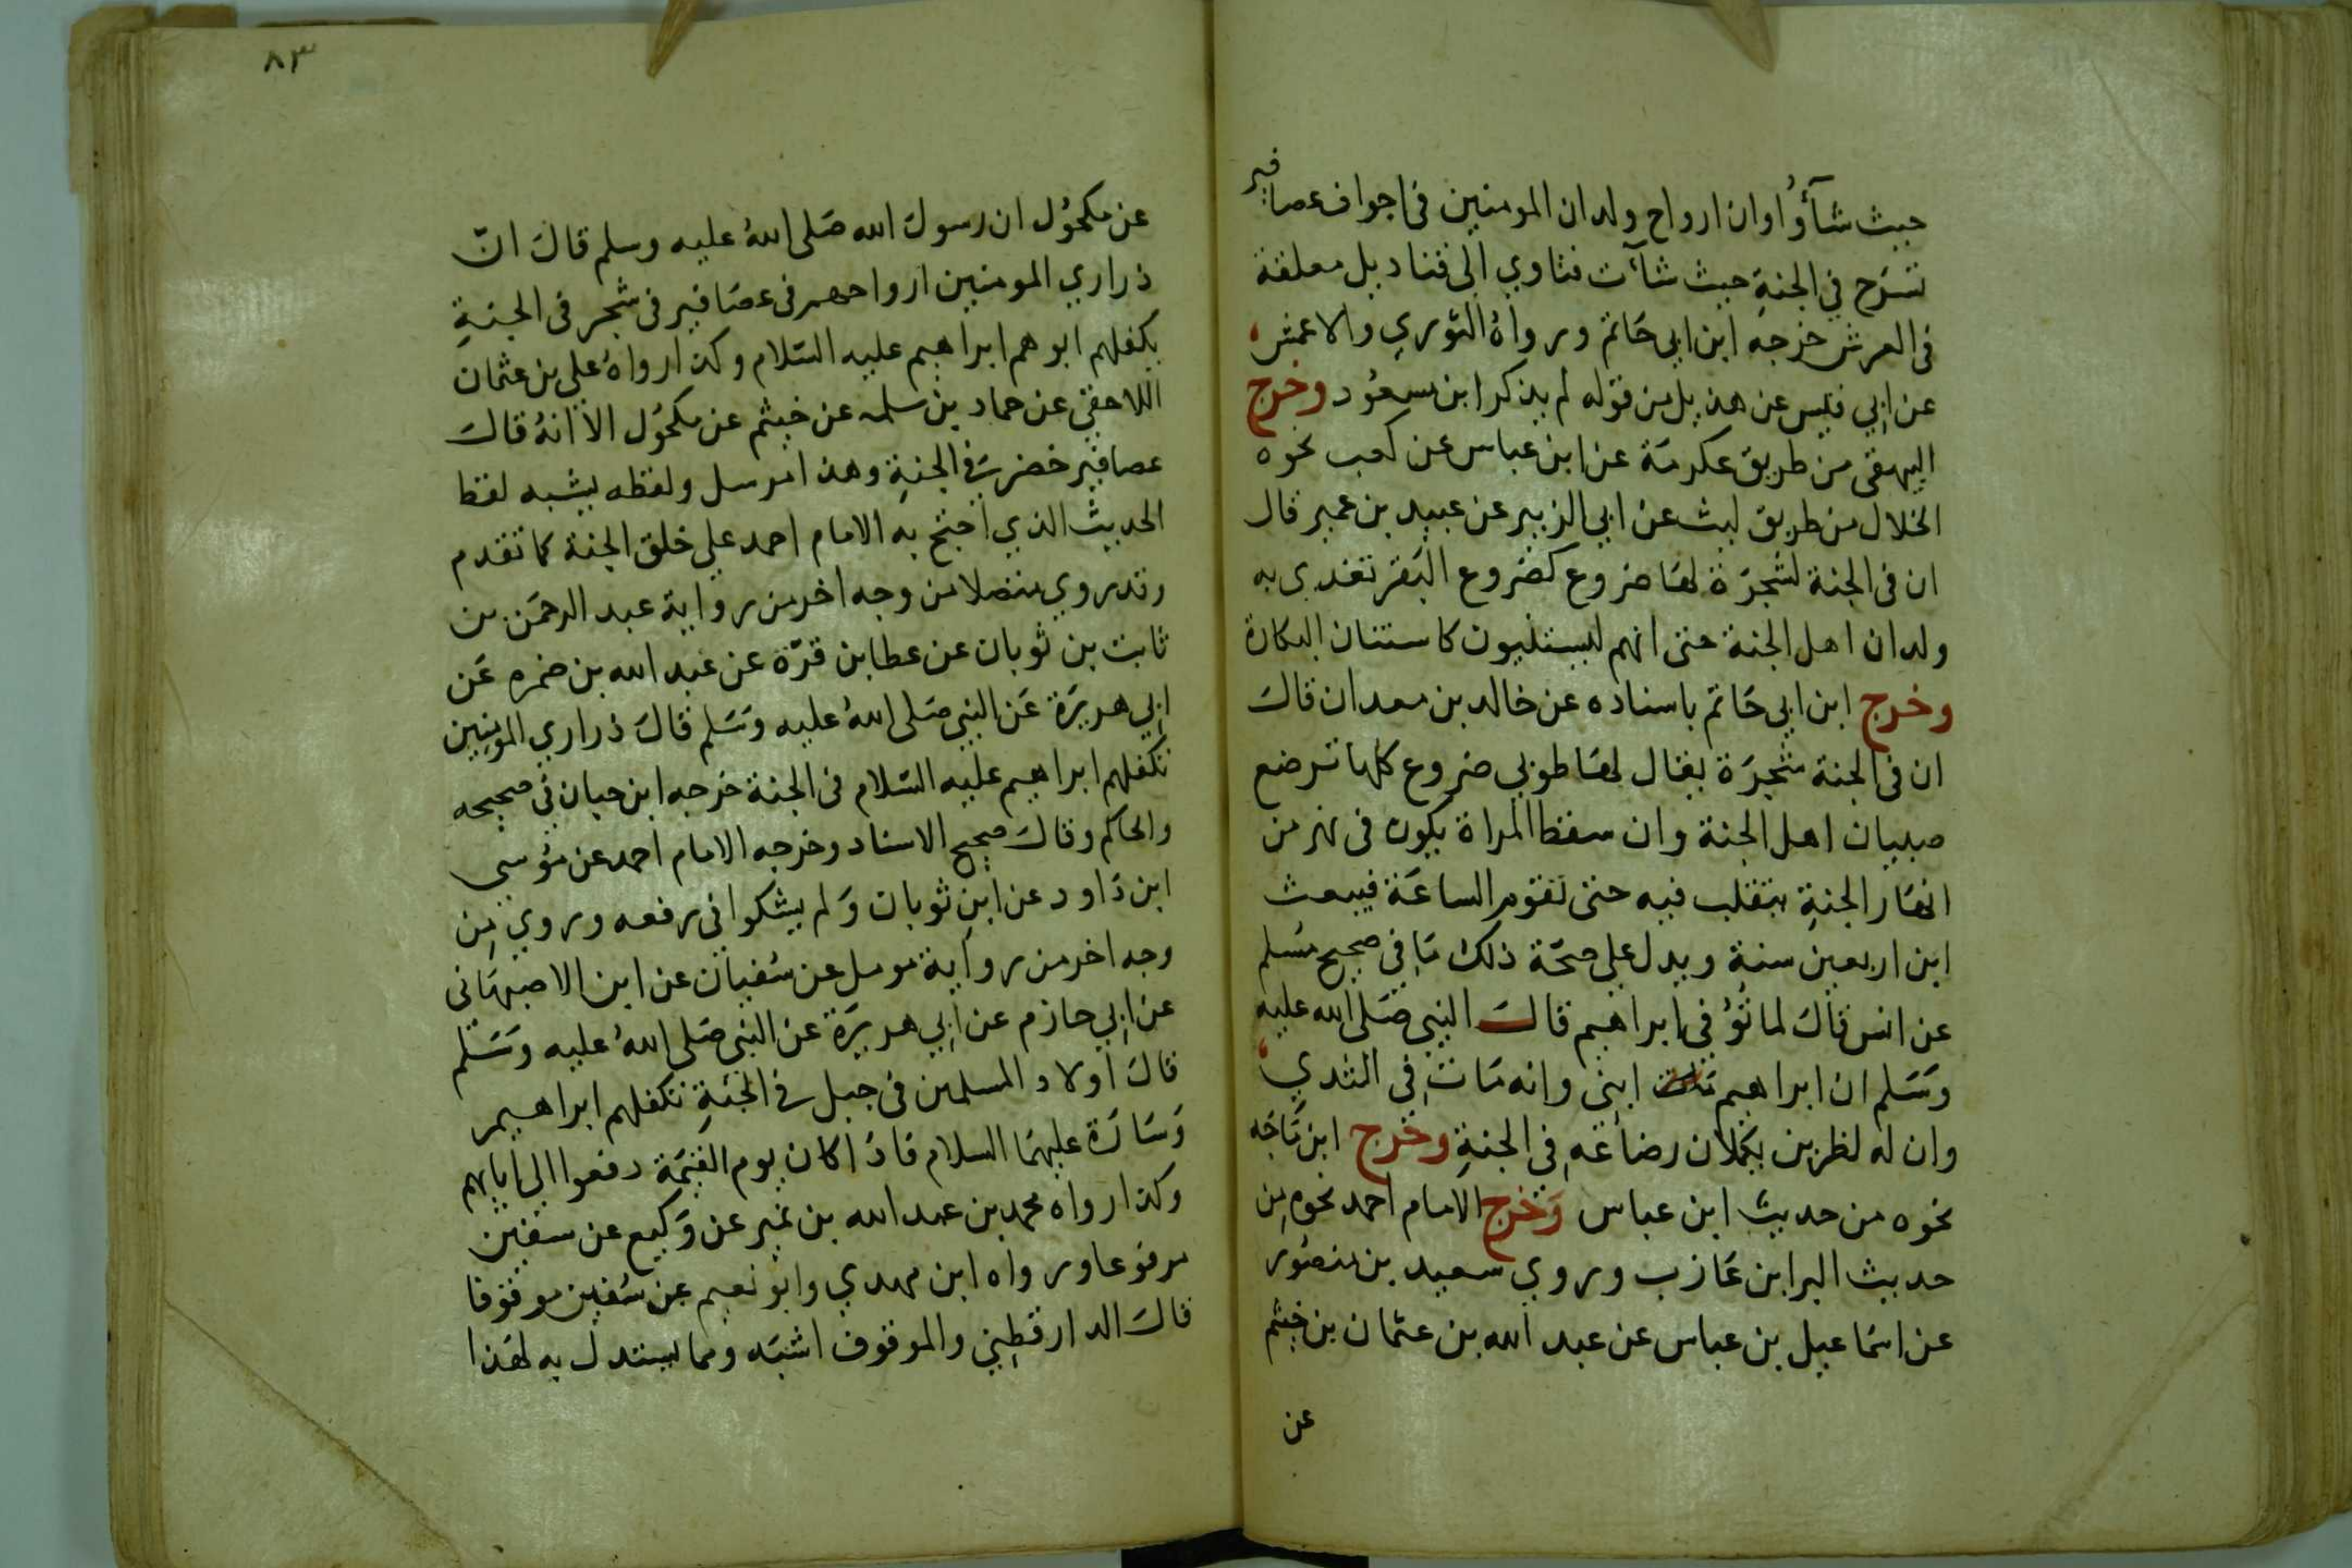 حيث شآؤُا وان ارواح ولدان المومنين فى اجواف عصافير
تسرَح في الجنةِ حيث شآءت فتاوي الى قناديل معلقة
فى العرش خرجه ابن ابى حَاتم ورواهُ الثوري والاعمش
عن ابِي قيس عن هذيل من قوله لم يذكر ابن مسعوُد وخرج
البيهقى من طريق عكرمَة عن ابن عباس عن كعب نحوه
الخلال من طريق ليث عن ابي الزبير عن عبيد بن عمير قال
ان فى الجنة لشجرَة لهَا ضروع كضروع البَقر تغذى به
ولدان اهل الجنة حتى انهم ليستنون كاستنان البكارة
وخرج ابن ابي حَاتم باسناده عن خالد بن معدان قالَ
ان فى الجنة شجرَة يقال لهَا طوبى ضروع كلها ترضع
صبيان اهل الجنة وان سقط المراة يكون فى نهر من
انهَار الجنةِ يتقلب فيه حتى تقوم الساعَة فيبعث
ابن اربعين سنة ويدل على صحَة ذلك مَا فِي صحيح مسُلم
عن انس قالَ لما توُفي ابراهيم قالَ النبي صَلى الله عليه
وَسَلم ان ابراهيم ابنِى وانه مَاتَ فِى الثدي
وان له لظئرين يكملان رضاعَه فِى الجنةِ وخرج ابن مَاجَه
نحوه من حديث ابن عباس وَخرج الامام احمد نحوه مِن
حديث البرا ابن عَازب وروي سعيد بن منصُور
عن اسَماعيل بن عياس عن عبد الله بن عثمان بن خيثم
عن
٨٣
عن مكحوُل ان رسولَ الله صَلى اللهُ عليه وسلم قالَ انّ
ذراري المومنين ارواحهم فى عصَافير فى شجر فى الجنةِ
يكفلهم ابوهم ابراهيم عليه السَلام وكذا رواهُ على بن عثمان
اللاحقي عن حماد بن سلمه عن خيثم عن مكحوُل الا انهُ قالَ
عصافير خضر فِى الجنةِ وهذا مرسل ولفظه يشبه لفظ
الحديث الذي احتج به الامام احمد على خلق الجنة كما تقدم
وقد روي متصلا من وجه اخر من رواية عبد الرحمَن بن
ثابت بن ثوبان عن عطا بن قرّة عن عَبد الله بن ضمره عَن
ابِي هريرَة عَن النبي صَلى اللهُ عليه وَسَلم قالَ ذراري المومنِين
تكفلهم ابراهيم عليه السَلام فى الجنة خرجه ابن حبان فِي صحيحه
والحاكم وقالَ صحيح الاسناد وخرجه الامام احمد عن موُسي
ابن دَاود عن ابنِ ثوبان وَلم يشكوا فى رفعه وروي مِن
وجه اخر من رواية مومل عن سُفيان عن ابن الاصبهَانى
عن ابِي حازم عن ابِي هريرَة عن النبي صَلى اللهُ عليه وَسَلم
قالَ اولاد المسلمين فى جبل فِى الجنَةِ تكفلهم ابراهيم
وَسَارَة عليهمَا السلام فَاذُا كان يوم القيمَة دفعوا الى ابايهم
وكذا رواه محمد بن عبد الله بن نمير عن وَكيع عن سفين
مرفوعا ورواه ابن مهدي وابوُ نعيم عن سُفين موقوفا
قالَ الدارقطِني والموقوف اشبَه ومما يستدل به لهَذا